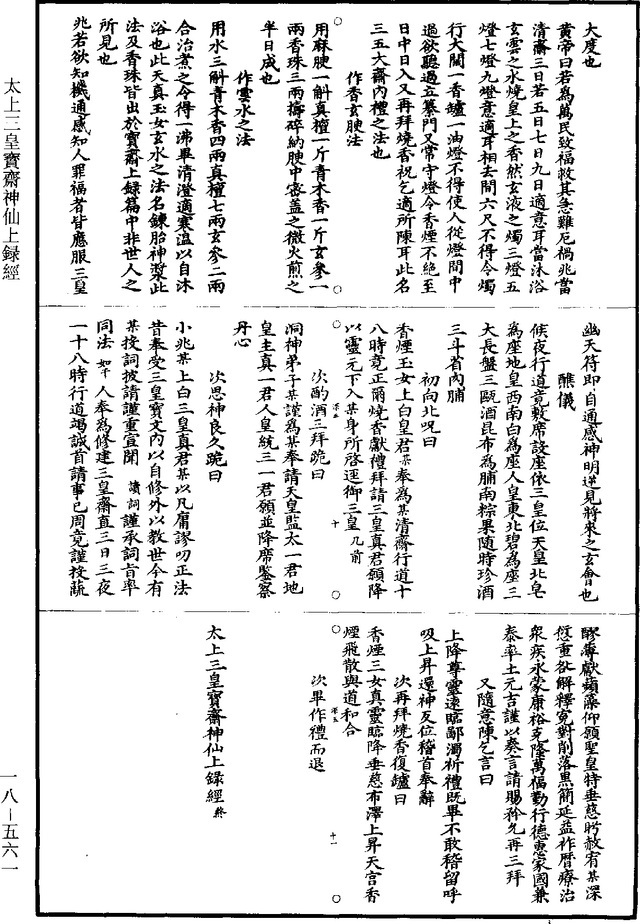 大度也
黄帝曰若為萬民致福救其急難厄禍兆當
清齋三日若五日七日九日適意耳當沐浴
玄雲之水燒皇上之香然玄液之燭三燈五
燈七燈九燈意適耳相去間六尺不得令燭
行大闇一香鑪一油燈不得使人從燈間中
過欲聽過立纂門又常守燈令香煙不絕至
日中日入又再拜燒香祝乞適所陳耳此名
三五大齋內禮之法也
作香玄腴法
用麻腴一斛真檀一斤青木香一斤玄參一
兩香珠三兩擣碎納腴中密蓋之微火煎之
半日成也
作雲水之法
用水三斛青木香四兩真檀七兩玄參二兩
合治煮之令得一沸畢清澄適寒溫以自沐
浴也此天真玉女玄水之法名鍊胎神漿此
法及香珠皆出於寶齋上録篇中非世人之
所見也
兆若欲知機通感知人罪福者皆應服三皇
幽天符即自通感神明逆見將來之玄會也
醮儀
候夜行道竟敷席設座依三皇位天皇北皂
為座地皇西南白為座人皇東北碧為座三
大長盤三甌酒昆布為脯南粽果隨時珍酒
三斗省內脯
初向北呪曰
香煙玉女上白皇君某奉為某清齋行道十
八時竟正爾燒香獻禮拜請三皇真君願降
以靈元下入某身所啓逕御三皇几前
次酌酒三拜跪曰
洞神弟子某謹為某奉請天皇監太一君地
皇主真一君人皇統三一君願並降席鑒察
丹心
次思神良久跪曰
小兆某上白三皇真君某以凡庸謬叨正法
昔奉受三皇寶文內以自修外以教世今有
某投詞披請謹重宣聞 讀詞 謹承詞旨率
同法如干人奉為修建三皇齋直三日三夜
一十八時行道竭誠首請事已周竟謹投蔬
醪薄獻蘋藻仰願聖皇特垂慈盼赦宥某深
愆重欲解釋寃對削落黑簡延益祚曆療治
衆疾永蒙康裕克隆萬福勤行德惠家國兼
泰率土元吉謹以奏言請賜矜允再三拜
又隨意陳乞言曰
上降尊靈遠臨鄙濁祈禮既畢不敢稽留呼
吸上昇還神反位稽首奉辭
次再拜燒香復鑪曰
香煙三女真靈臨降垂慈布澤上昇天宫香
煙飛散與道和合
次畢作禮而退
太上三皇寶齋神仙上録經終
十
十一
太上三皇寶齋神仙上録經
一八－五六一